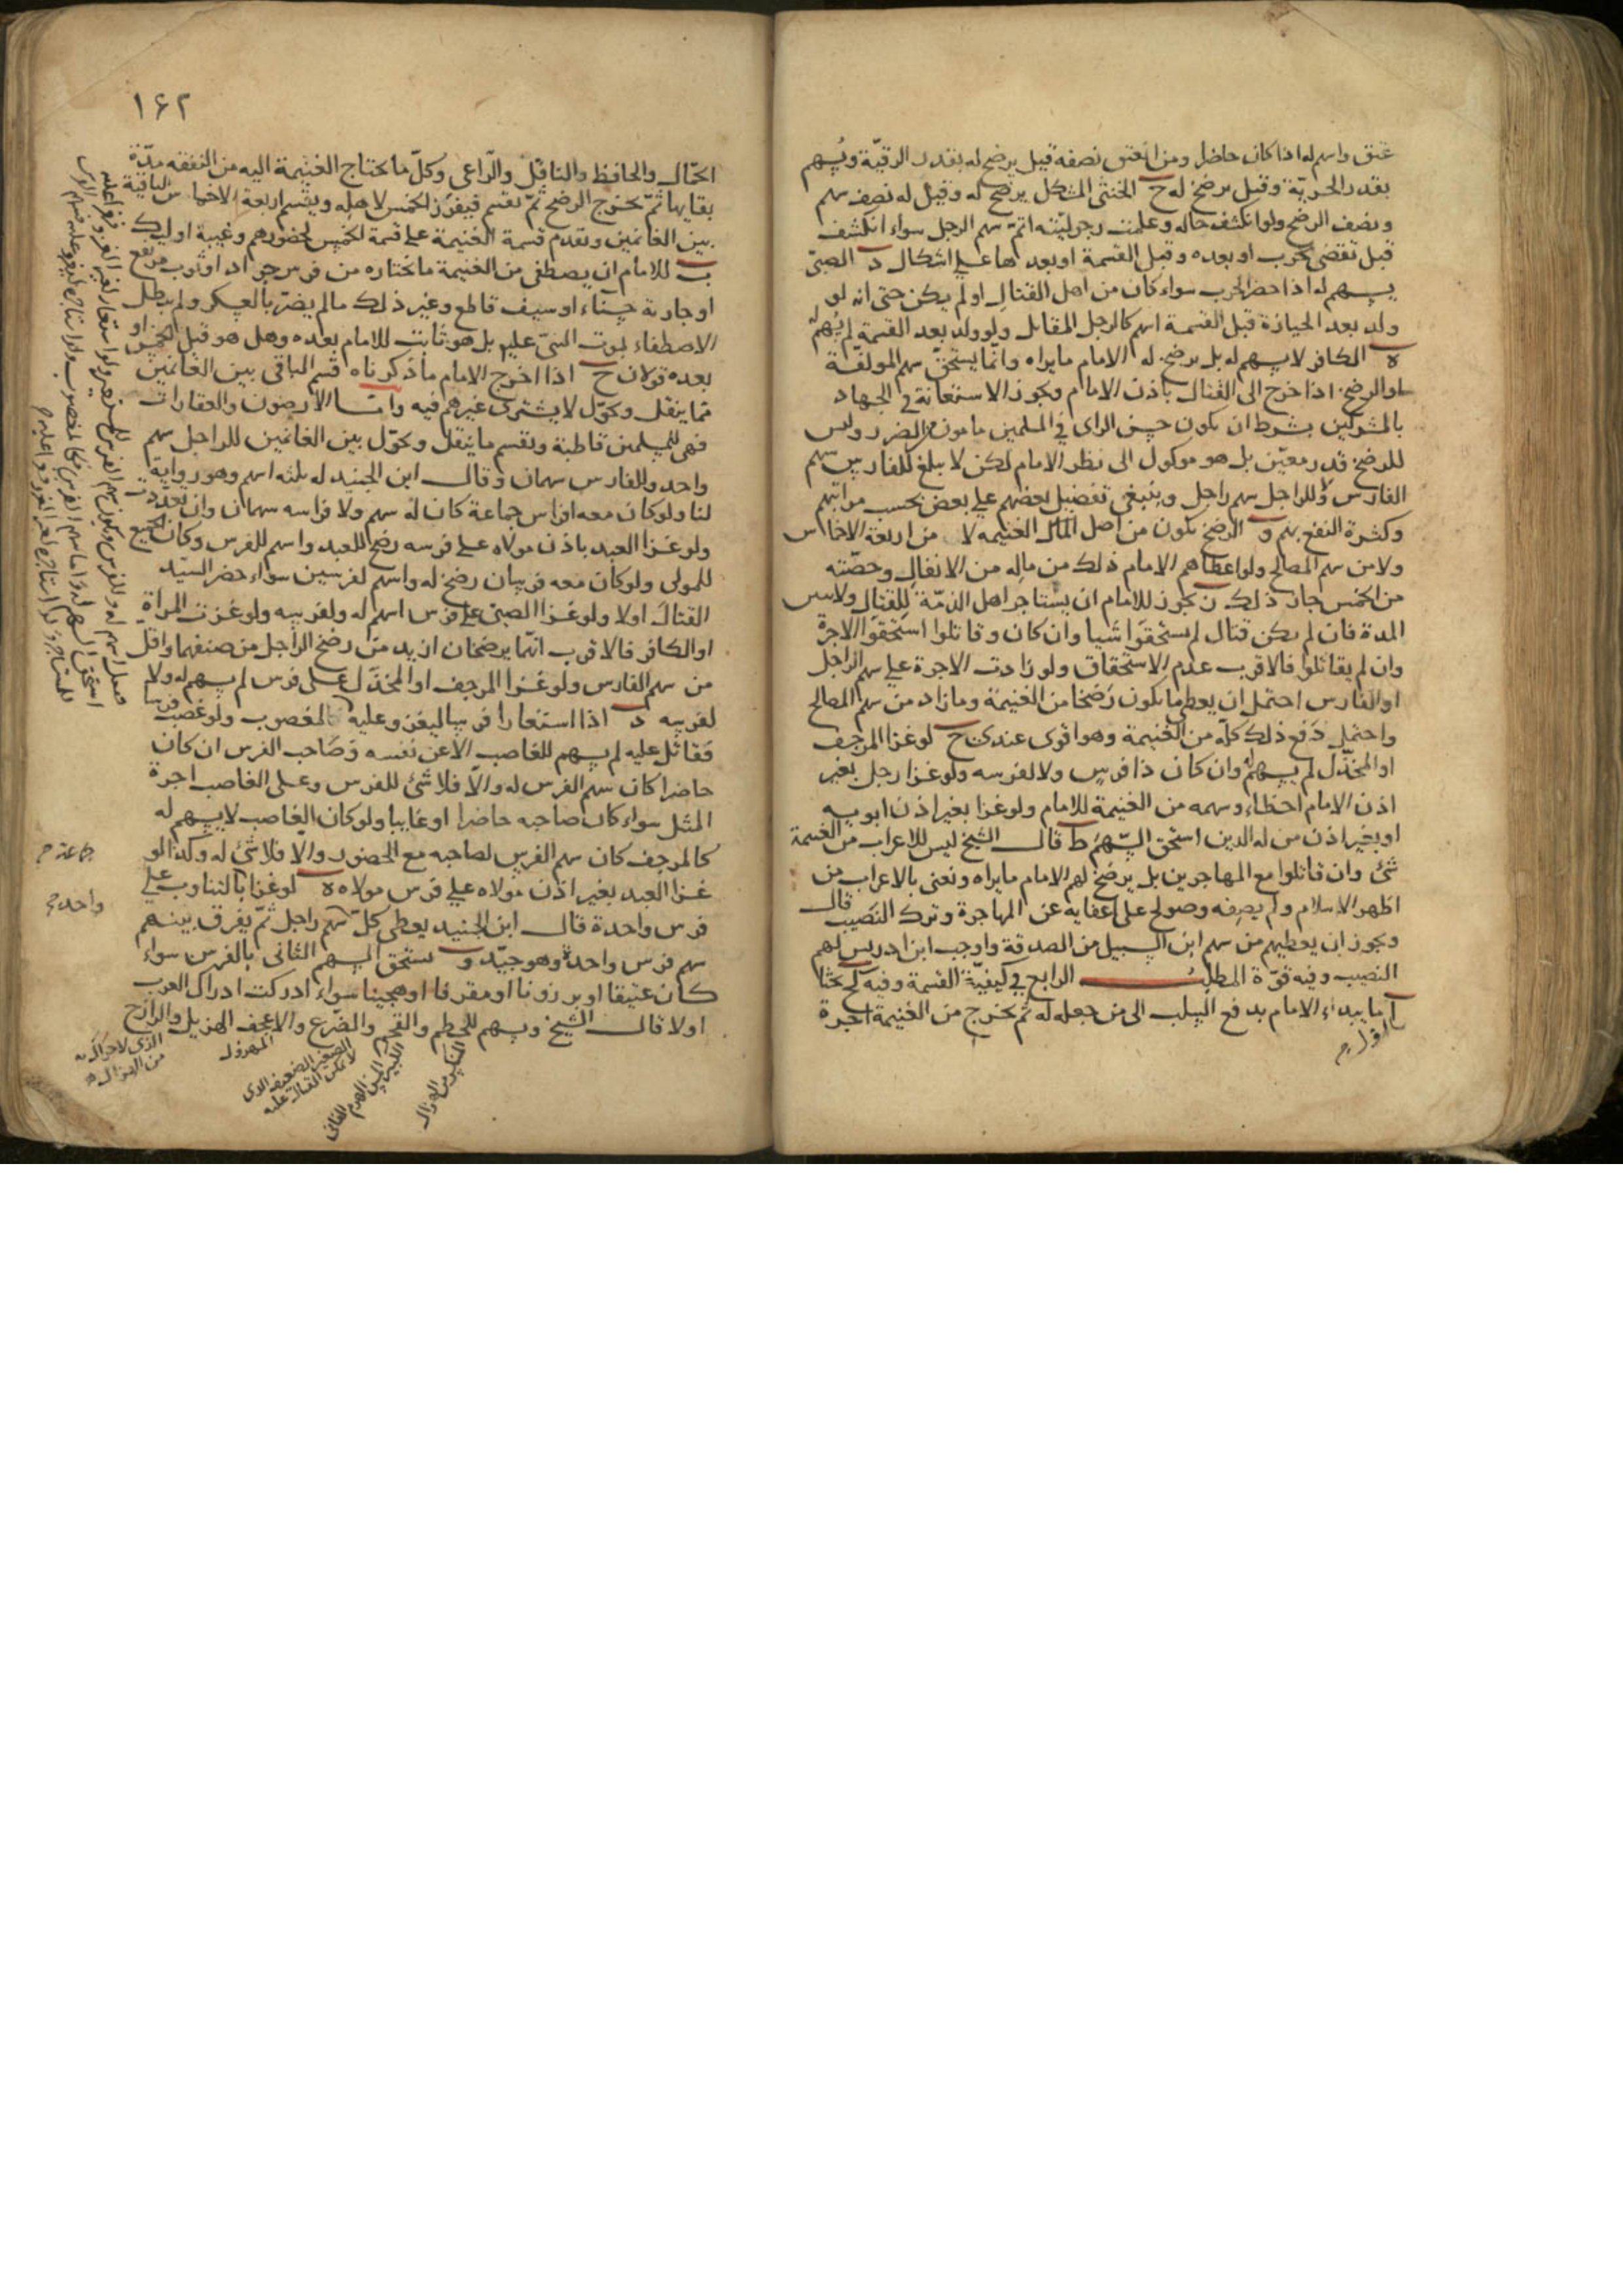 عتق واسهم له اذا كان حاضرا ومن انعتق نصفه قيل يرضخ له بقدر الرقيّة ويُسهم
بقدر الحريّة وقيل يرضخ له ح الخنثى المشكل يرضخ له وقيل له نصف سهم
ونصف الرضخ ولو انكشف حاله وعلمت رجوليّته اتمّ سهم الرجل سواء انكشف
قبل تقضى الحرب او بعده وقبل القسمة او بعدها على اشكال د الصبىّ
يسهم له اذا حضر الحرب سواء كان من اهل القتال او لم يكن حتى انه لو
ولد بعد الحيازة قبل القسمة اسهم كالرجل المقاتل ولو ولد بعد القسمة لم يُسهم له
ه الكافر لا يسهم له بل يرضخ له الامام ما يراه وانّما يستحقّ سهم المولفّة
او الرضخ اذا خرج الى القتال باذن الامام ويجوز الاستعانة فى الجهاد
بالمشركين بشرط ان يكون حسن الراى فى المسلمين مامون الضرر وليس
للرضخ قدر معيّن بل هو موكول الى نظر الامام لكن لا يبلغ للفارس سهم
الفارس وللراجل سهم راجل وينبغى تفضيل بعضهم على بعض بحسب مراتبهم
وكثرة النفع بهم و الرضخ يكون من اصل الغنيمه لا من اربعة الاخماس
ولا من سهم المصالح ولو اعطاهم الامام ذلك من ماله من الانفال وحصّته
من الخمس جاز ذلك ز يجوز للامام ان يستاجر اهل الذمّة للقتال ولا يبين
المدة فان لم يكن قتال لم يستحقوا شيا وان كان وقاتلوا استحقوا الاجرة
وان لم يقاتلوا فالاقرب عدم الاستحقاق ولو زادت الاجرة على سهم الراجل
او الفارس احتمل ان يعطى ما يكون رضخا من الغنيمة وما زاد من سهم المصالح
واحتمل دفع ذلك كلّه من الغنيمة وهو اقوى عندى ح لو غزا المرجف
او المخذّل لم يسهم له وان كان ذا فرس ولا لفرسه ولو غزا رجل بغير
اذن الامام اخطاء وسهمه من الغنيمة للامام ولو غزا بغير اذن ابويه
او بغير اذن من له الدين استحق السّهم ط قال الشيخ ليس للاعراب من الغنيمة
شئ وان قاتلوا مع المهاجرين بل يرضخ لهم الامام ما يراه ونعنى بالاعراب من
اظهر الاسلام ولم يصفه وصولح على اعفايه عن المهاجرة وترك النصيب قال
ويجوز ان يعطيهم من سهم ابن السبيل من الصدقة واوجب ابن ادريس لهم
النصيب وفيه قوّة المطلب الرابع فى كيفيّة القسمة وفيه بحثا
آ ما يبداء الامام بدفع السلب الى من جعله له ثمّ يخرج من الغنيمة اجرة
اوّل
۱۶۲
الحمّال والحافظ والناقل والرّاعى وكلّ ما يحتاج الغنيمة اليه من النفقه مدّة
بقايها ثمّ يخرج الرضخ ثمّ تقسم فيفرز الخمس لاهله ويقسم اربعة الاخماس الباقية
بين الغانمين ويقدم قسمة الغنيمة على قسمة الخمس لحضورهم وغيبة اوليك
ب للامام ان يصطفى من الغنيمة ما يختاره من فرس جواد او ثوب مرتفع
او جارية حسناء او سيف قاطع وغير ذلك ما لم يضرّ بالعسكر ولم يبطل
الاصطفاء بموت النبىّ عليه بل هو ثابت للامام بعده وهل هو قبل الخمس او
بعده قولان ج اذا اخرج الامام ما ذكرناه قسم الباقى بين الغانمين
ممّا ينقل ويحوّل لا يشترى غيرهم فيه وامّا الارضون والعقارات
فهى للمسلمين قاطبة ويقسم ما ينقل ويحوّل بين الغانمين للراجل سهم
واحد وللفارس سهمان وقال ابن الجنيد له ثلثة اسهم وهو رواية
لنا ولو كان معه افراس جماعة كان له سهم ولافراسه سهمان وان تعددت
ولو غزا العبد باذن مولاه على فرسه رضخ للعبد واسهم للفرس وكان الجميع
للمولى ولو كان معه فرسان رضخ له واسهم لفرسين سواء حضر السيّد
القتال اولا ولو غزا الصبىّ على فرس اسهم له ولفرسه ولو غزت المراة
او الكافر فالاقرب انّما يرضخان ازيد من رضخ الراجل من صنفهما واقل
من سهم الفارس ولو غزا المرجف او المخذّل على فرس لم يسهم له ولا
لفرسه د اذا استعار فرسا ليغزو عليه ولو غصب فرسا
فقاتل عليه لم يسهم للغاصب الا عن نفسه وصاحب الفرس ان كان
حاضرا كان سهم الفرس له والّا فلا شئ للفرس وعلى الغاصب اجرة
المثل سواء كان صاحبه حاضرا او غايبا ولو كان الغاصب لا يسهم له
كالمرجف كان سهم الفرس لصاحبه مع الحضور والّا فلا شئ له وكذا لو
غزا العبد بغير اذن مولاه على فرس مولاه ه لو غزا بالتناوب على
فرس واحدة قال ابن الجنيد يعطى كلّ سهم راجل ثمّ يفرق بينهم
سهم فرس واحدة وهو جيّد و يستحق السهم الثانى بالفرس سواء
كان عتيقا او برزونا او مقرفا او هجينا سواء ادركت ادراك العراب
اولا قال الشيخ ويسهم للحطم والقحم والضّرع والاعجف الهزيل والرازح
جماعة
واحد
المنكسر من الهزال
الكبير المسن الهرم الفانى
الصغير الضعيف الذى
لا يمكن القتال عليه
المهزول
الذى لا حراك به
من الهزال